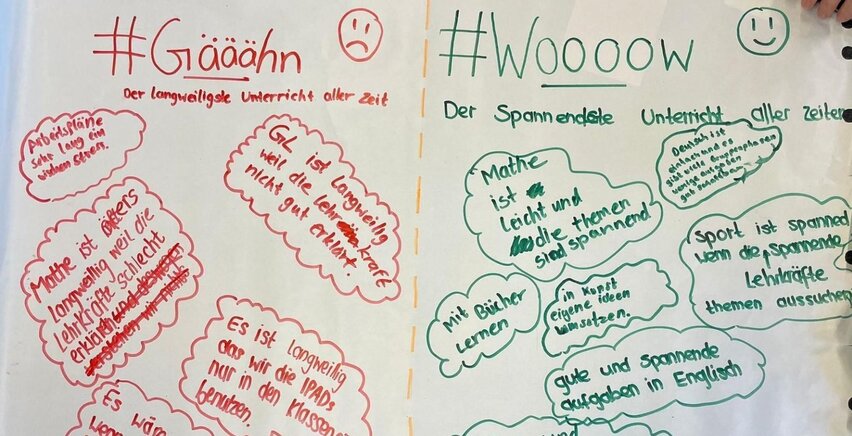 #Gäääähn
Der langweiligste Unterricht aller Zeit
Arbeitspläne
sehr lang ein
GL ist langweilig
weil die lehrkraft
nicht gut erklärt.
Mathe ist öfters
langweilig weil die
Lehrkräfte schlecht
erklärt
Es ist langweilig
das wir die IPADs
nur in den Klassen
benutzen.
Es wäre
wenn
#Woooow
Der Spannendste Unterricht aller Zeiten
Mathe
ist
Leicht und
die themen
sind spannend
Deutsch ist
einfach und es
gibt viele Gruppenphasen
wenige aufgaben
gut
Sport ist spannend
wenn die spannende
Lehrkräfte
themen aussuchen
Mit Bücher
Lernen
in Kunst
eigene ideen
umsetzen.
gute und spannende
aufgaben in Englisch
und